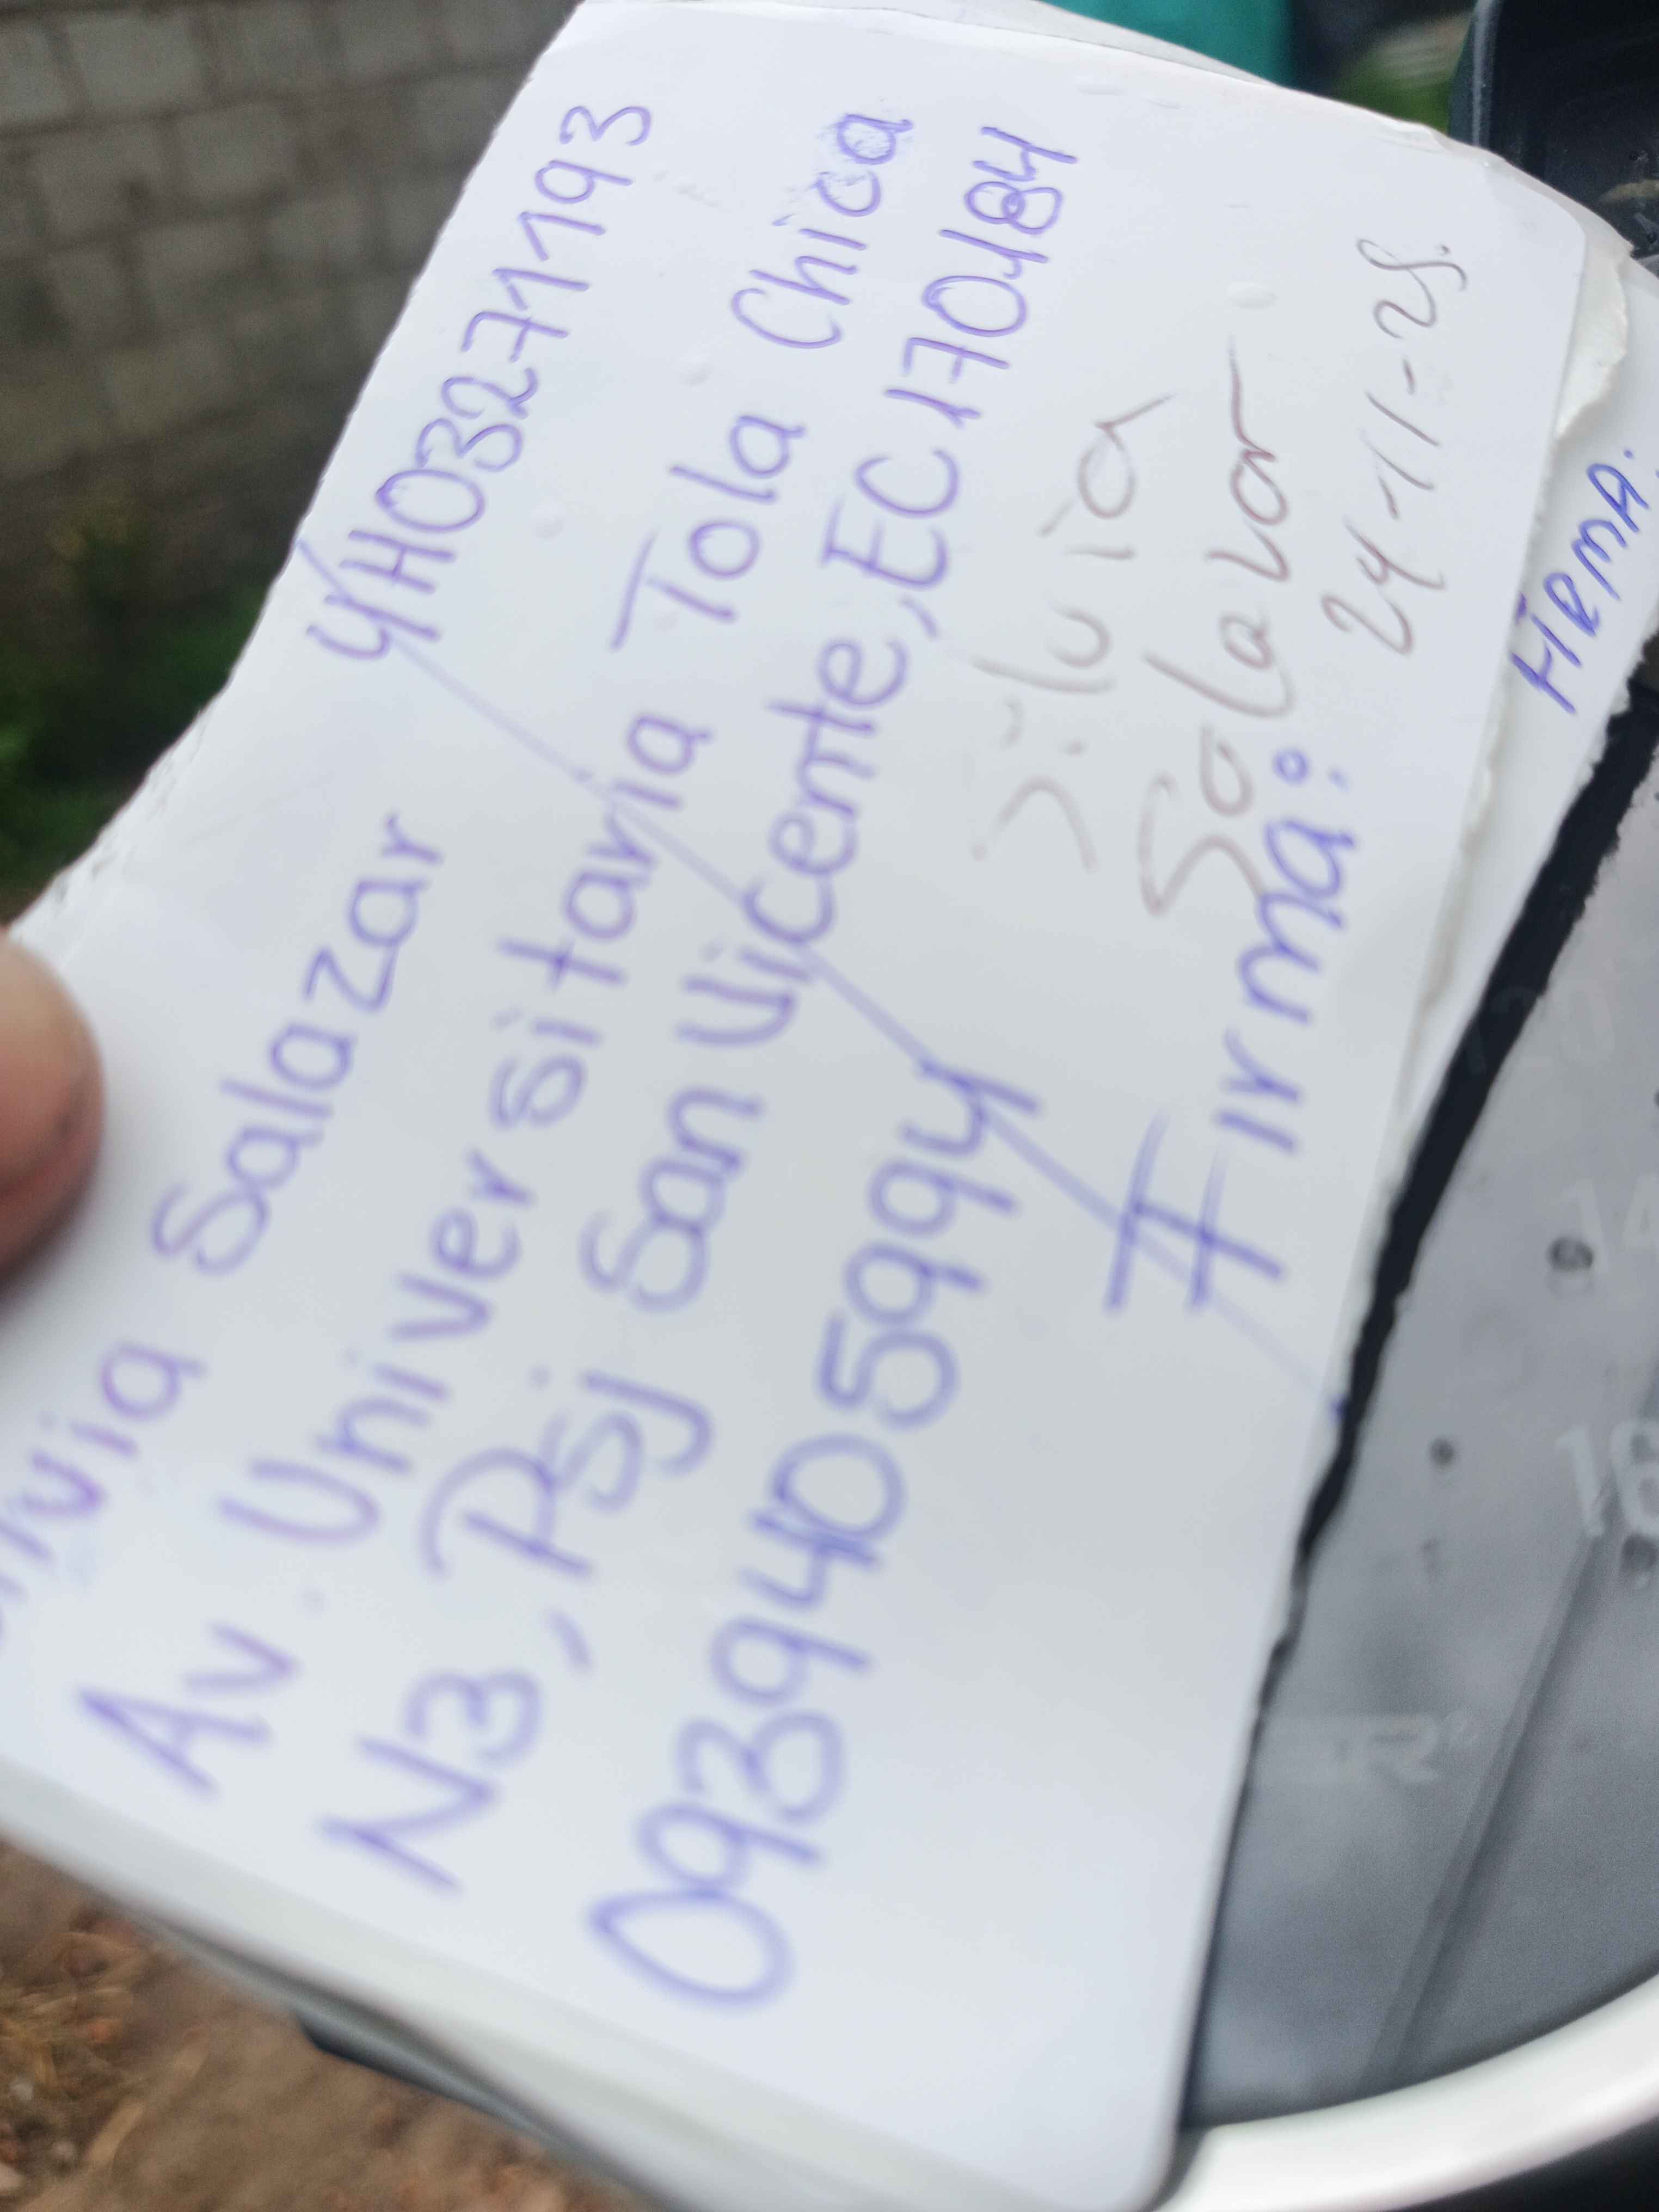 Silvia Salazar 4H03271193
Av. Universitaria Tola Chica
N3, Psj San Vicente, EC 170184
0939405994
Silvia
Salazar
Firma: 24-11-25.
FIRMA:
16